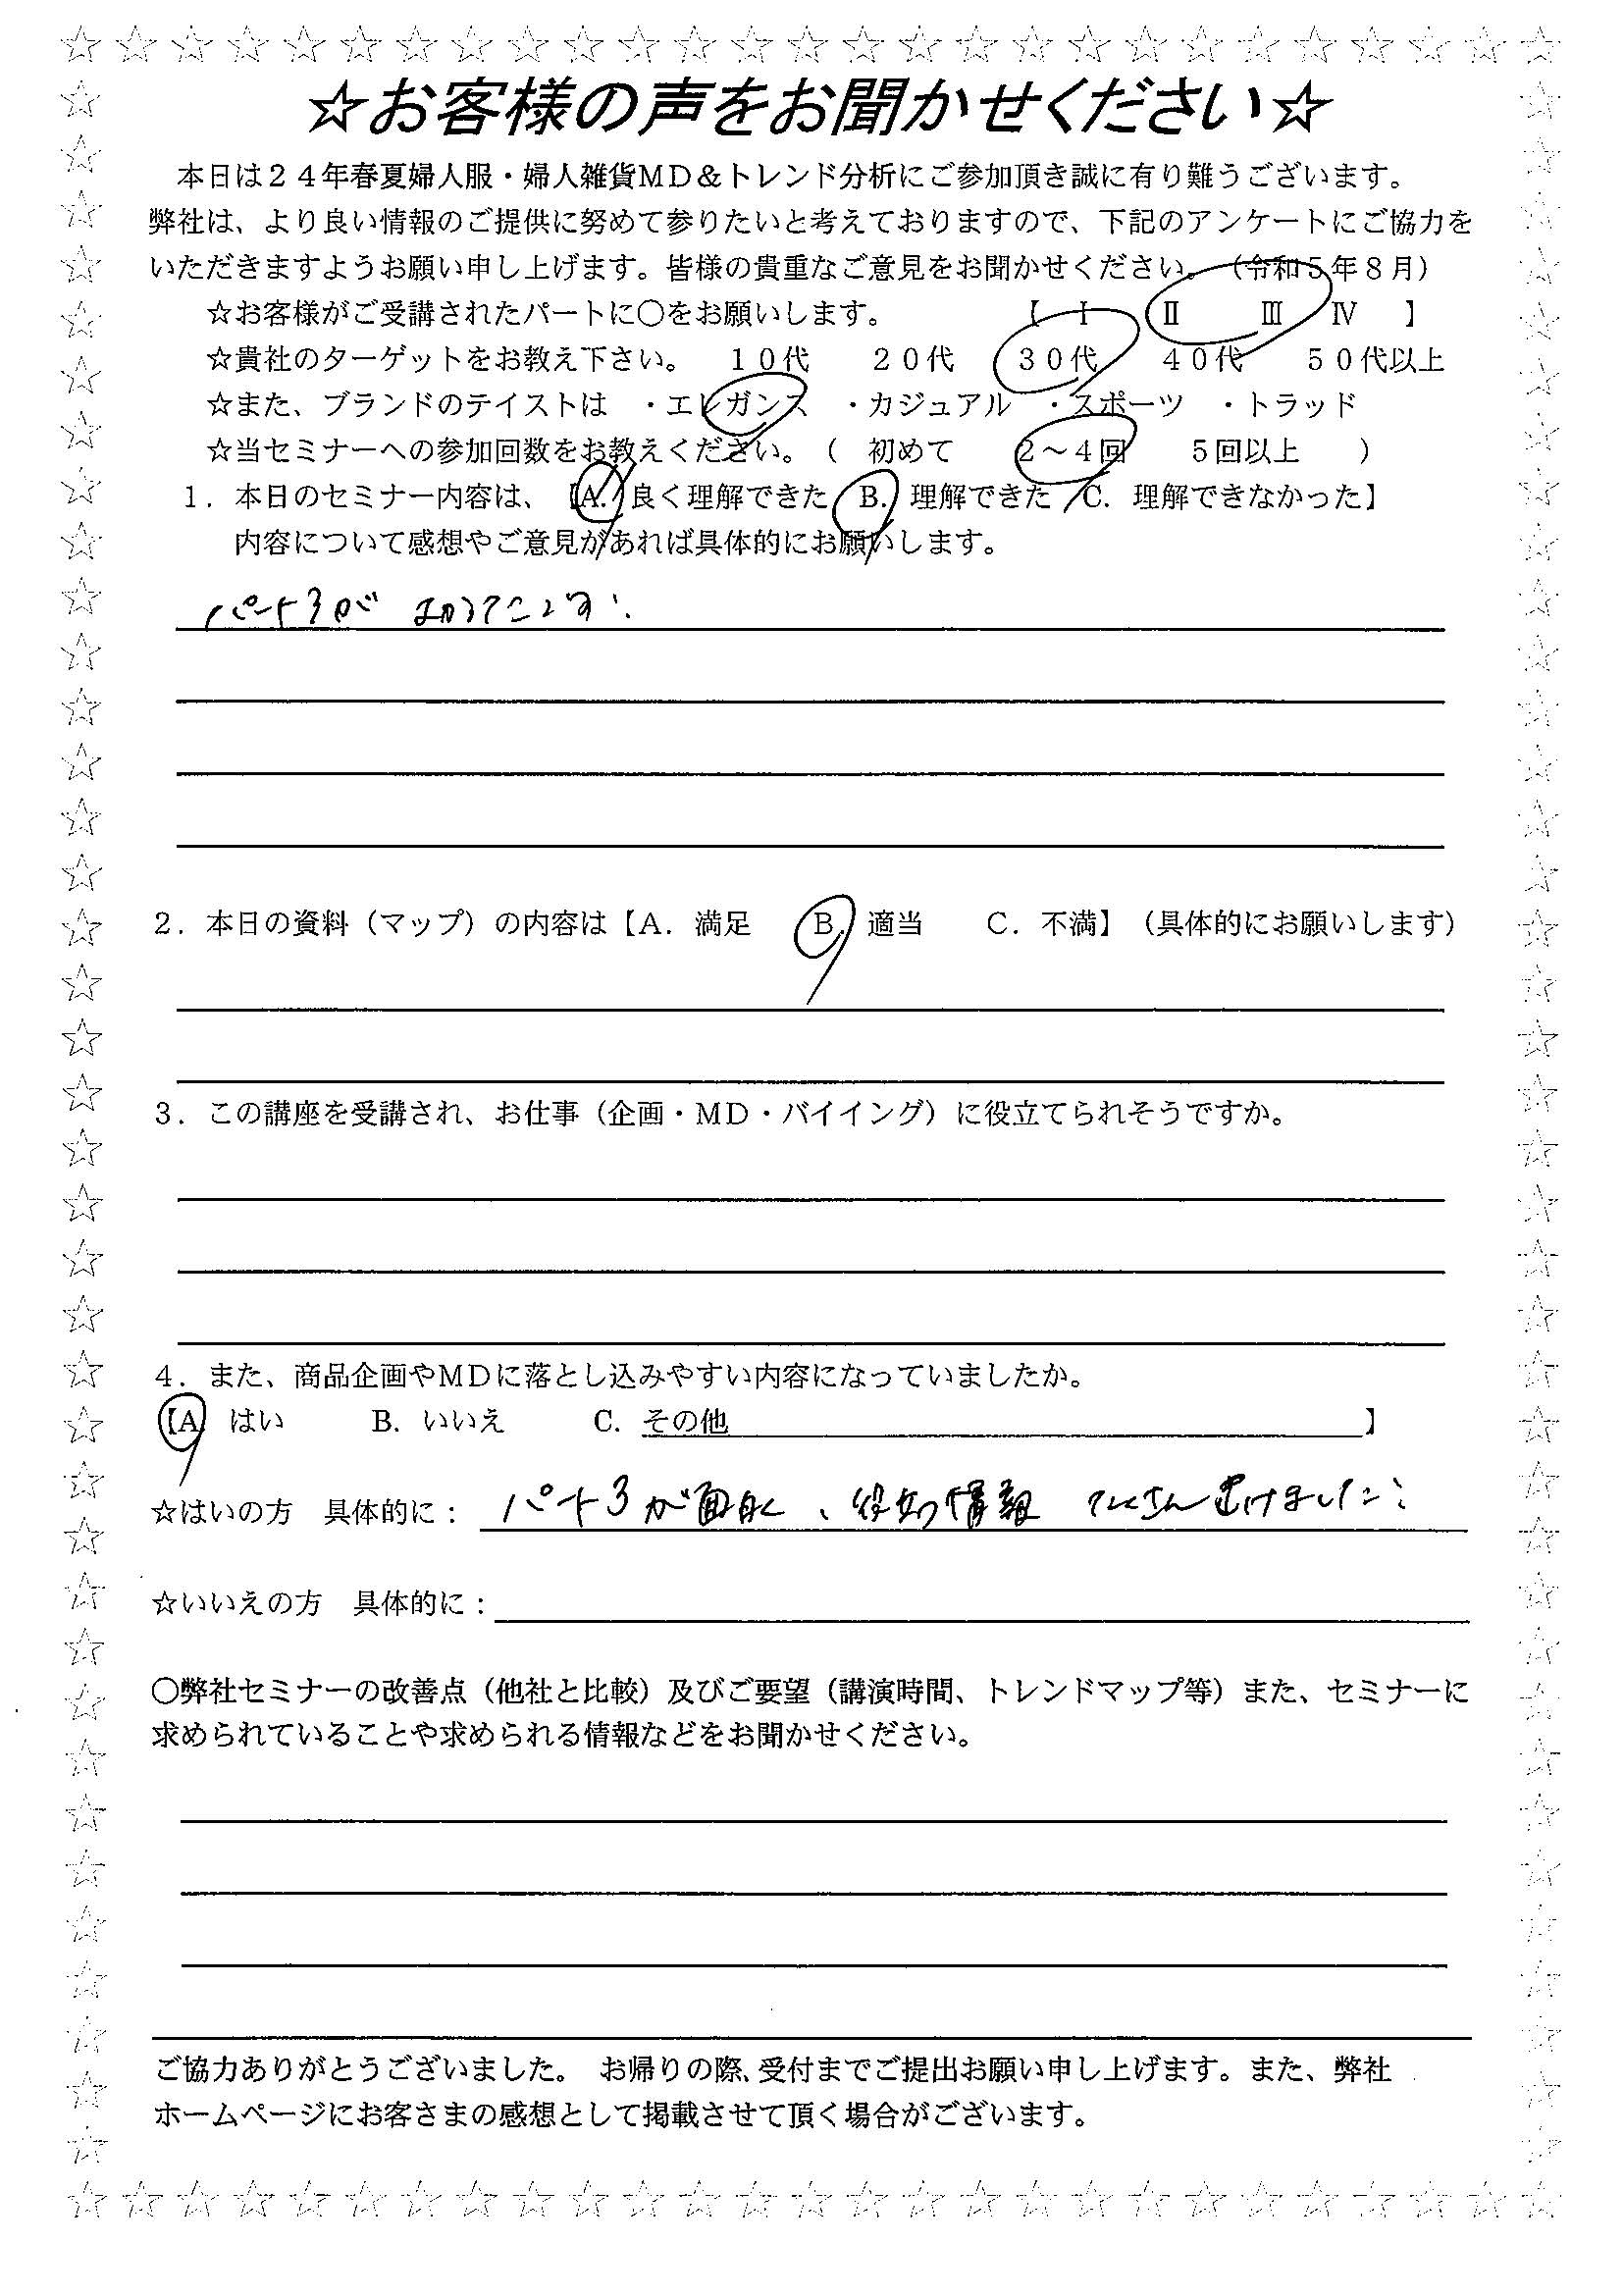 ☆お客様の声をお聞かせください☆
本日は２４年春夏婦人服・婦人雑貨ＭＤ＆トレンド分析にご参加頂き誠に有り難うございます。
弊社は、より良い情報のご提供に努めて参りたいと考えておりますので、下記のアンケートにご協力を
いただきますようお願い申し上げます。皆様の貴重なご意見をお聞かせください。（令和５年８月）
☆お客様がご受講されたパートに〇をお願いします。 【 Ⅰ Ⅱ Ⅲ Ⅳ 】
☆貴社のターゲットをお教え下さい。 １０代 ２０代 ３０代 ４０代 ５０代以上
☆また、ブランドのテイストは ・エレガンス ・カジュアル ・スポーツ ・トラッド
☆当セミナーへの参加回数をお教えください。（ 初めて ２～４回 ５回以上 ）
１．本日のセミナー内容は、【A. 良く理解できた B. 理解できた C. 理解できなかった】
内容について感想やご意見があれば具体的にお願いします。
パート３が
２．本日の資料（マップ）の内容は【Ａ．満足 Ｂ．適当 Ｃ．不満】（具体的にお願いします）
３．この講座を受講され、お仕事（企画・ＭＤ・バイイング）に役立てられそうですか。
４．また、商品企画やＭＤに落とし込みやすい内容になっていましたか。
【A. はい B. いいえ C. その他 】
☆はいの方 具体的に： パート３が面白く、 情報 たくさん ました
☆いいえの方 具体的に：
〇弊社セミナーの改善点（他社と比較）及びご要望（講演時間、トレンドマップ等）また、セミナーに
求められていることや求められる情報などをお聞かせください。
ご協力ありがとうございました。 お帰りの際、受付までご提出お願い申し上げます。また、弊社
ホームページにお客さまの感想として掲載させて頂く場合がございます。